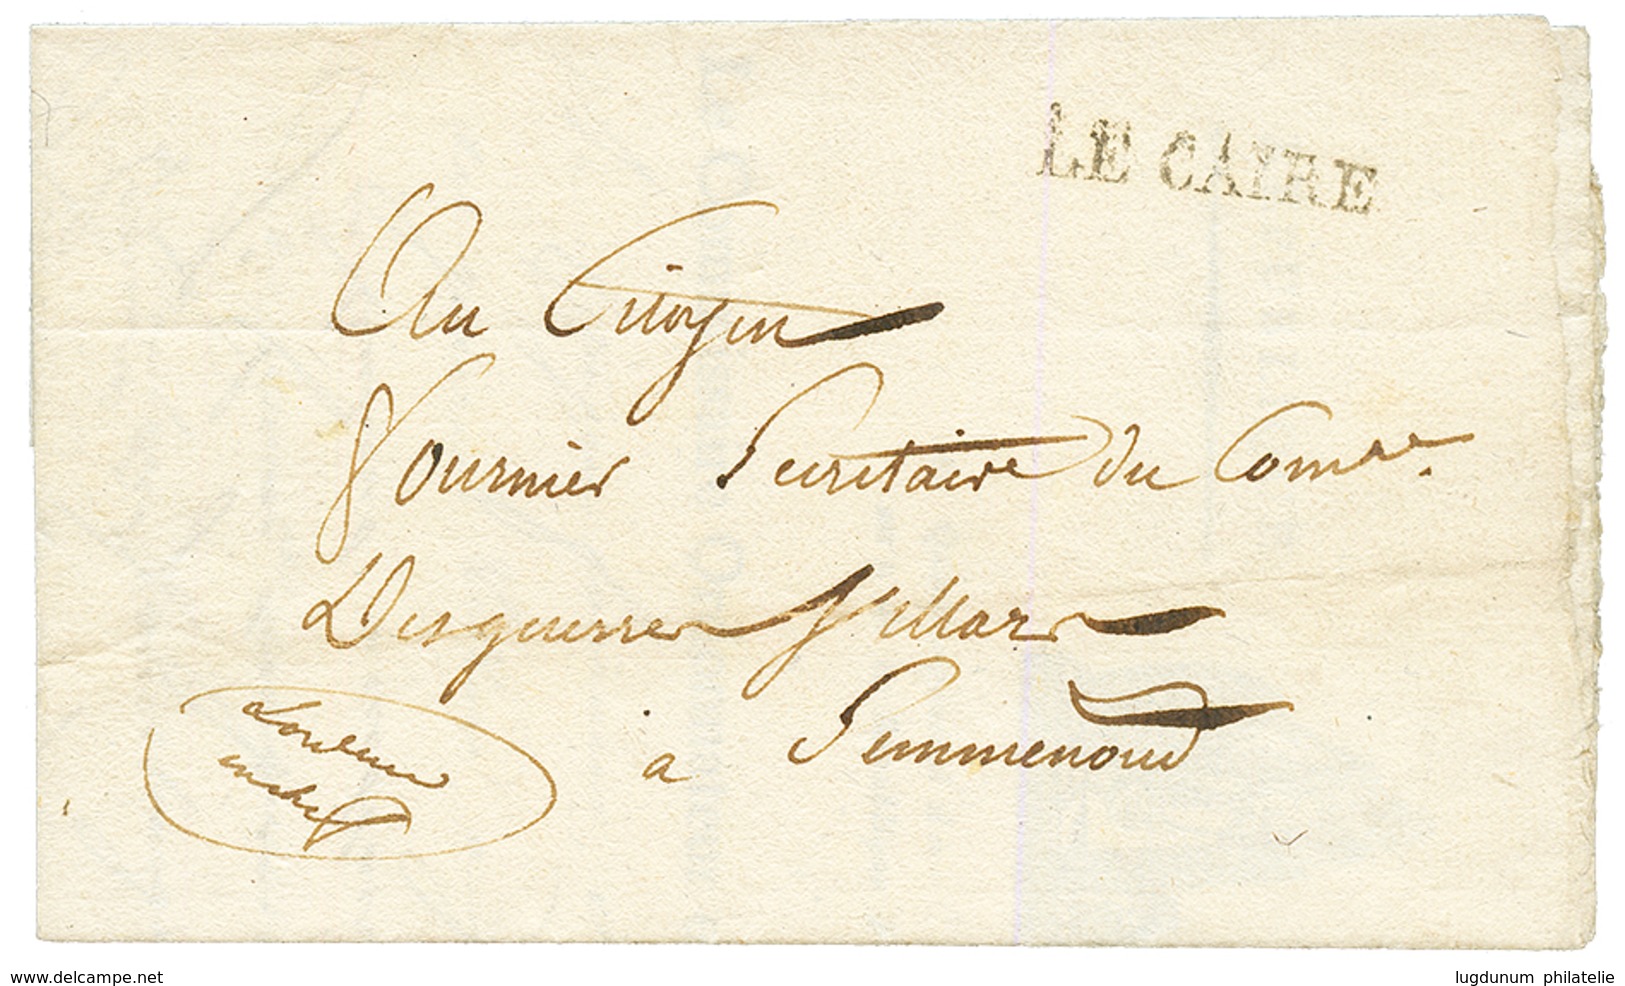 LE CAIRE
Au Citoyen
Fournier Secretaire du Comre.
Desguerre Villars
à Semmenoud
www.delcampe.net
lugdunum philatelie